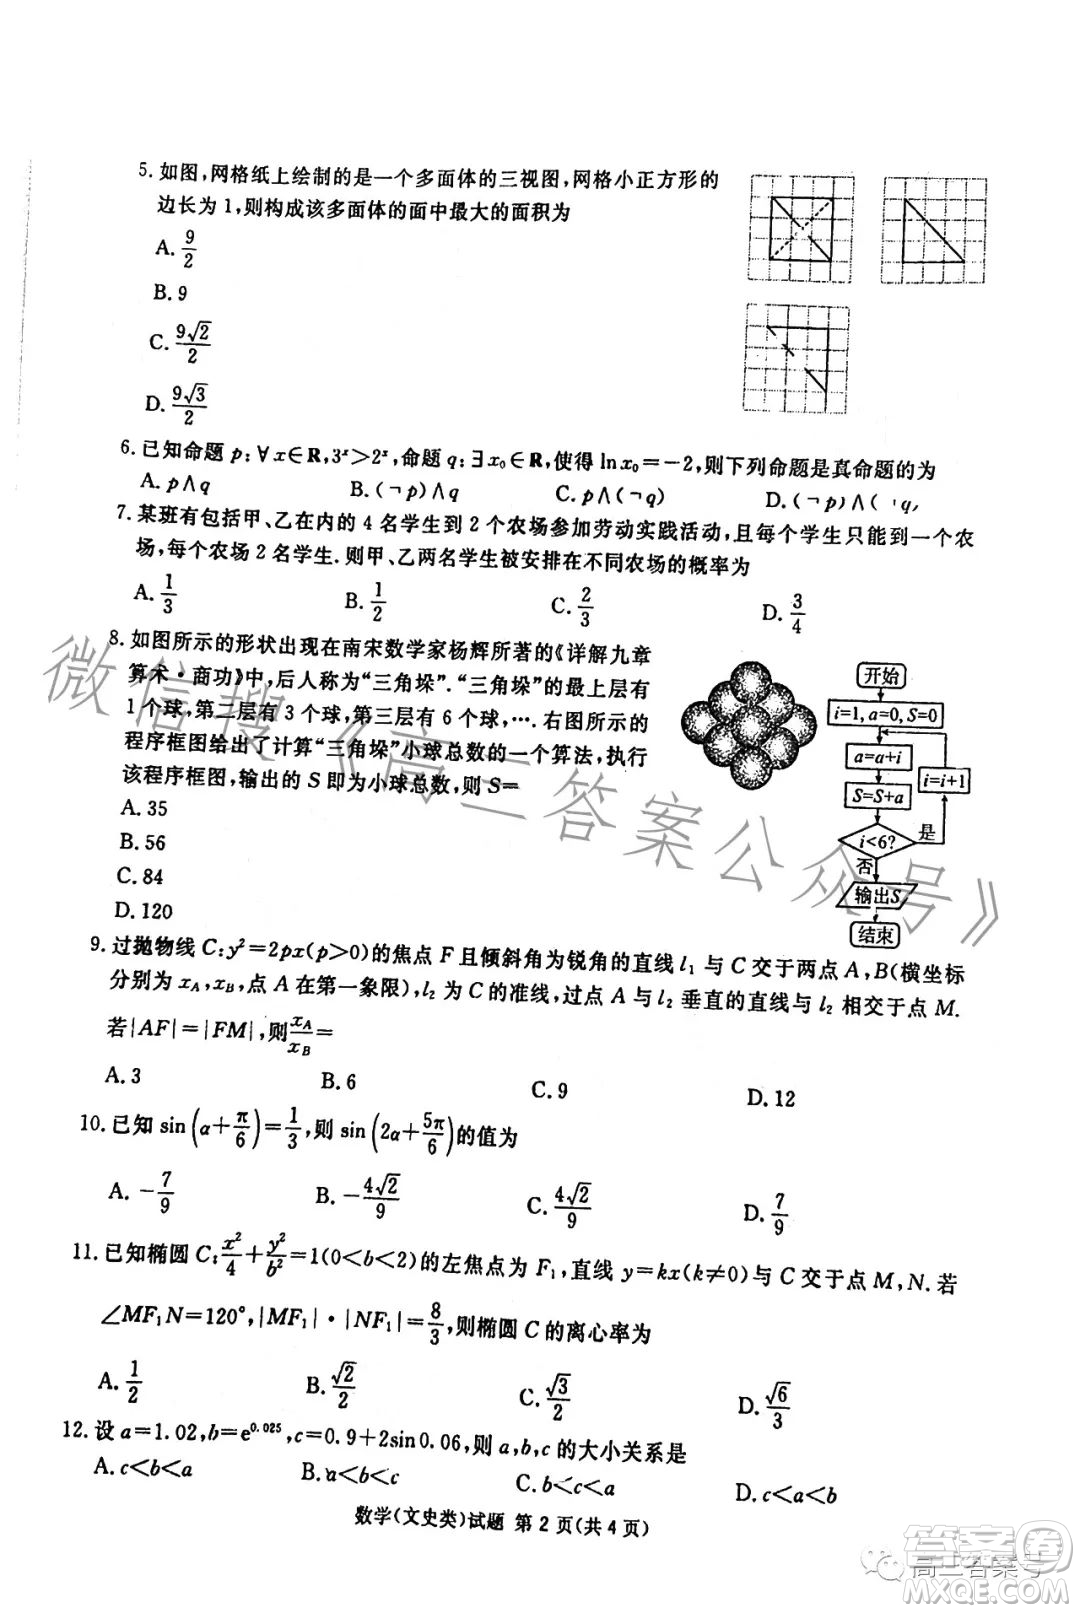 5. 如图,网格纸上绘制的是一个多面体的三视图,网格小正方形的
边长为 1,则构成该多面体的面中最大的面积为
A. 9/2
B. 9
C. 9√2/2
D. 9√3/2
6. 已知命题 p:∀x∈R,3ˣ>2ˣ,命题 q:∃x₀∈R,使得 ln x₀=-2,则下列命题是真命题的为
A. p∧q B. (¬p)∧q C. p∧(¬q) D. (¬p)∧(¬q)
7. 某班有包括甲、乙在内的 4 名学生到 2 个农场参加劳动实践活动,且每个学生只能到一个农
场,每个农场 2 名学生.则甲、乙两名学生被安排在不同农场的概率为
A. 1/3 B. 1/2 C. 2/3 D. 3/4
8. 如图所示的形状出现在南宋数学家杨辉所著的《详解九章
算术·商功》中,后人称为“三角垛”.“三角垛”的最上层有
1 个球,第二层有 3 个球,第三层有 6 个球,….右图所示的
程序框图给出了计算“三角垛”小球总数的一个算法,执行
该程序框图,输出的 S 即为小球总数,则 S=
A. 35
B. 56
C. 84
D. 120
开始
i=1,a=0,S=0
a=a+i
i=i+1
S=S+a
i<6?
是
否
输出S
结束
9. 过抛物线 C:y²=2px(p>0)的焦点 F 且倾斜角为锐角的直线 l₁ 与 C 交于两点 A,B(横坐标
分别为 x_A,x_B,点 A 在第一象限),l₂ 为 C 的准线,过点 A 与 l₂ 垂直的直线与 l₂ 相交于点 M.
若|AF|=|FM|,则 x_A/x_B=
A. 3 B. 6 C. 9 D. 12
10. 已知 sin(α+π/6)=1/3,则 sin(2α+5π/6)的值为
A. -7/9 B. -4√2/9 C. 4√2/9 D. 7/9
11. 已知椭圆 C:x²/4+y²/b²=1(0<b<2)的左焦点为 F₁,直线 y=kx(k≠0)与 C 交于点 M,N.若
∠MF₁N=120°,|MF₁|·|NF₁|=8/3,则椭圆 C 的离心率为
A. 1/2 B. √2/2 C. √3/2 D. √6/3
12. 设 a=1.02,b=e^0.025,c=0.9+2sin0.06,则 a,b,c 的大小关系是
A. c<b<a B. a<b<c C. b<c<a D. c<a<b
数学(文史类)试题 第 2 页(共 4 页)
微信搜《高三答案公众号》
高三答案号
答案圈
MXQE.COM